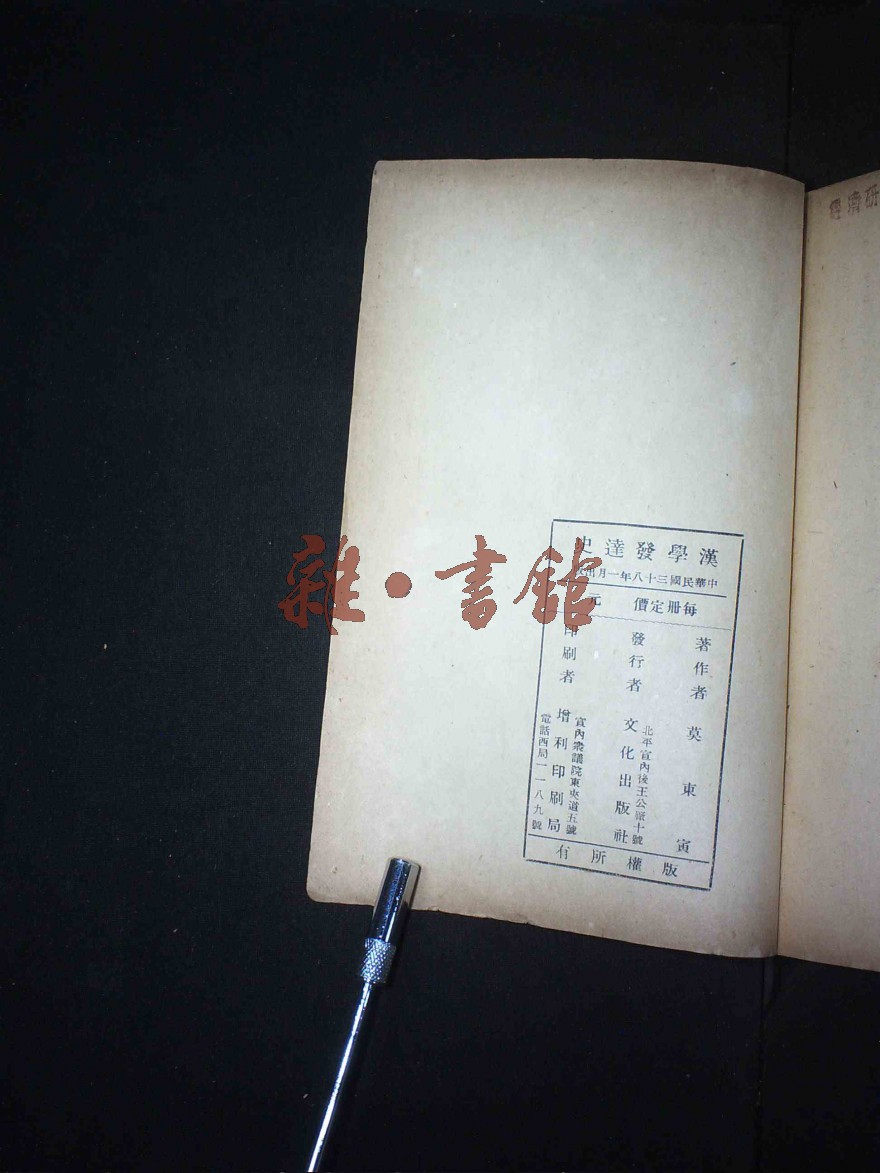 漢學發達史
中華民國三十八年一月出版
每册定價　元
著作者　莫東寅
發行者　文化出版社
北平宣內後王公廠十號
印刷者　增利印刷局
宣內衆議院東夾道五號
電話西局一一八九號
版權所有
經濟研
雜·書館